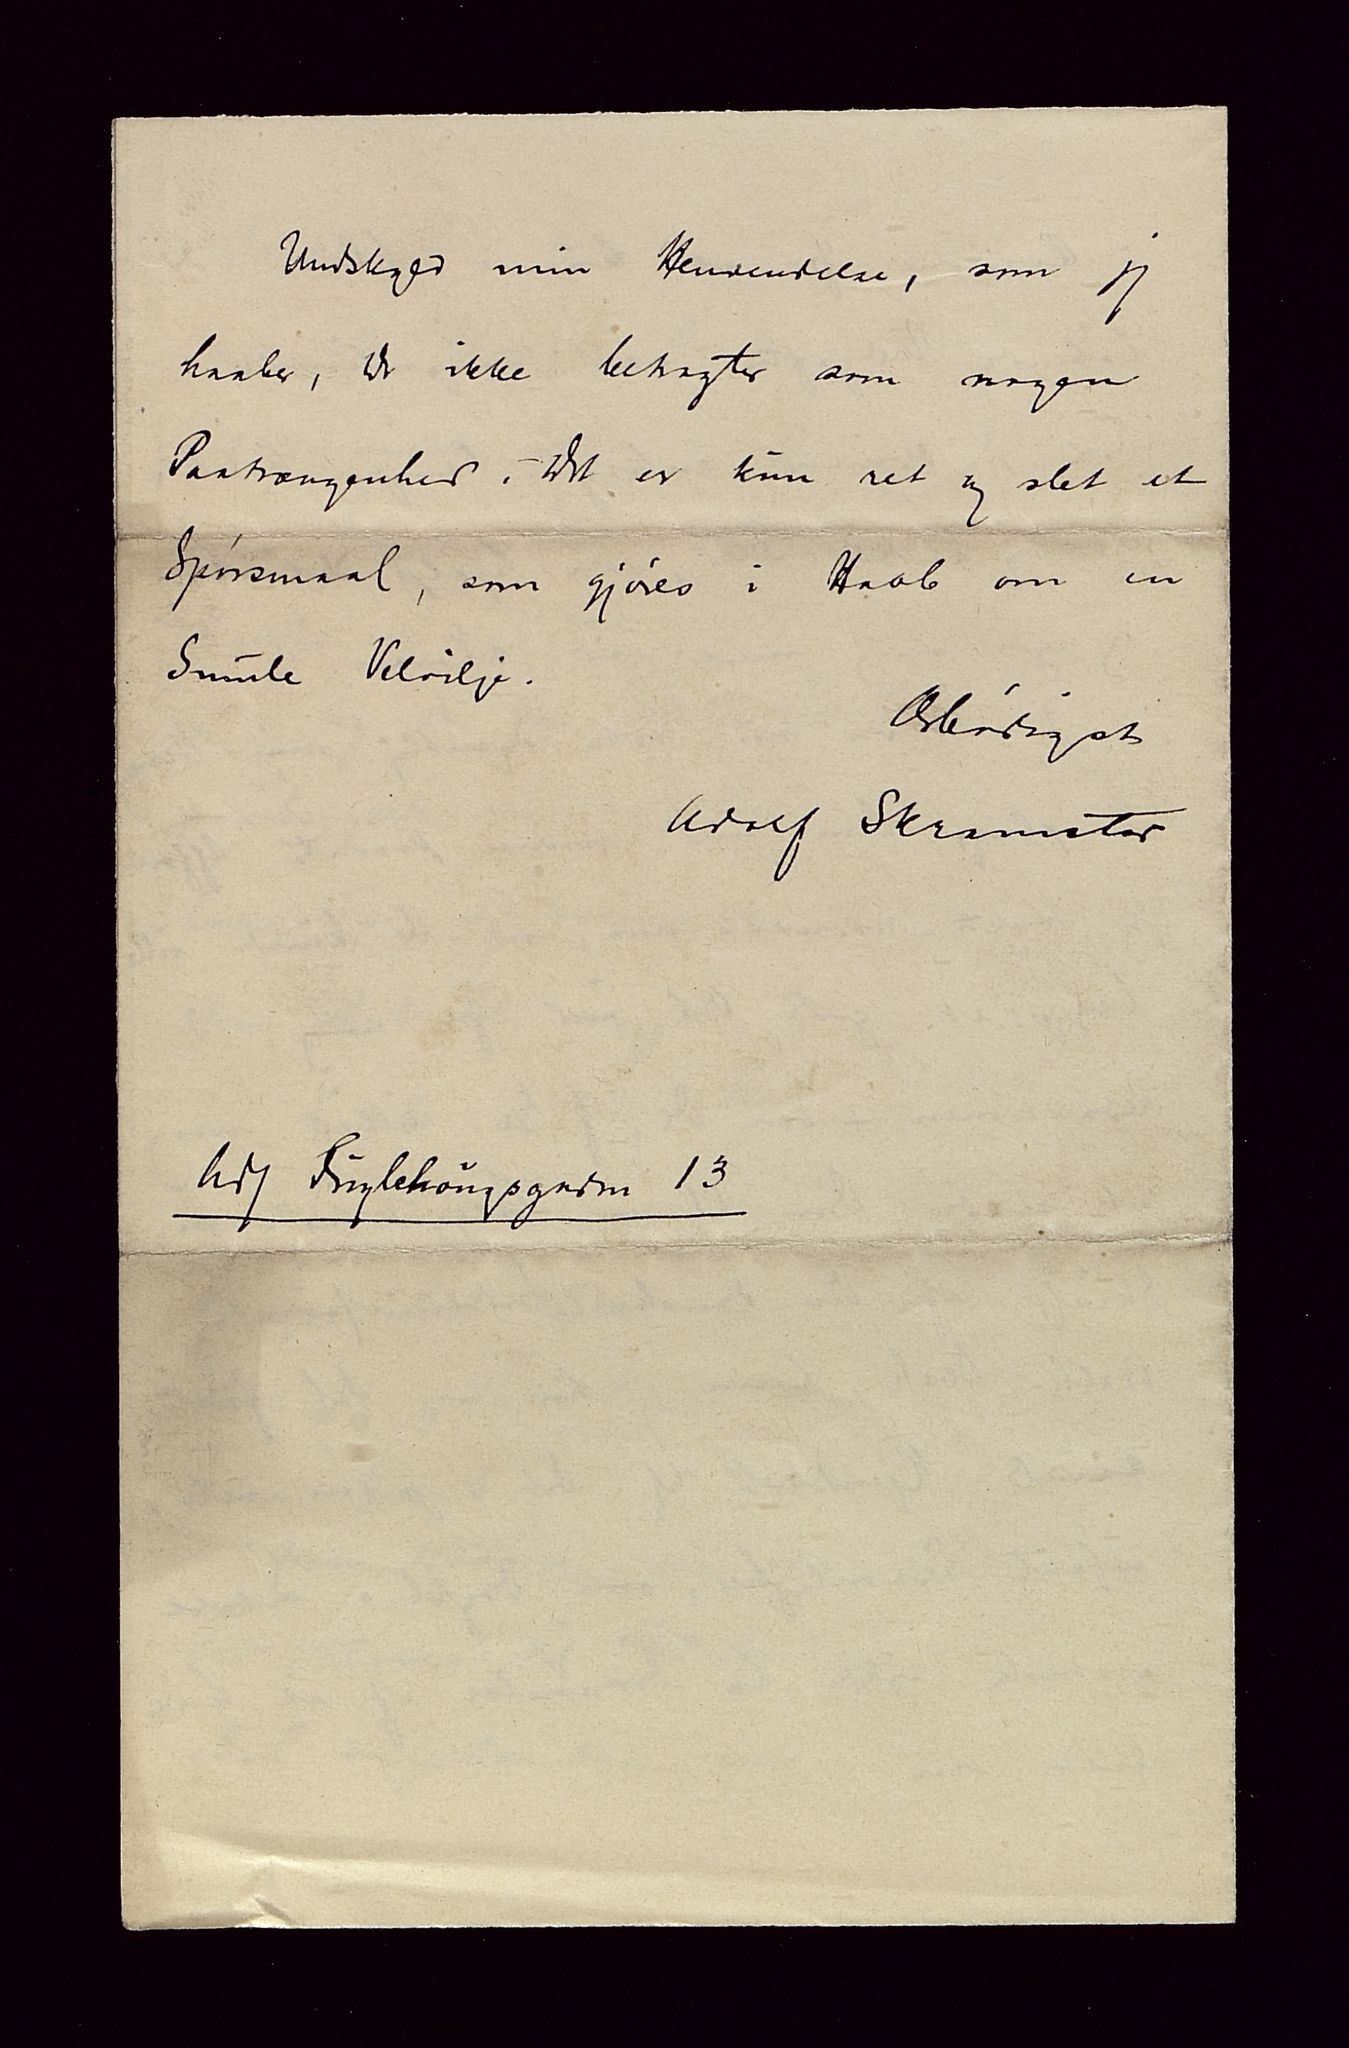 Undskyld min Henvendelse, som jeg
haaber, De ikke betragter som nogen
Paatrængenhed. – Det er kun ret og slet et
Spörsmaal, som gjöres i Haab om en
Smule Velvilje.
Ærbödigst
Adolf Skramstad
Adr Fuglehaugsgaden 13